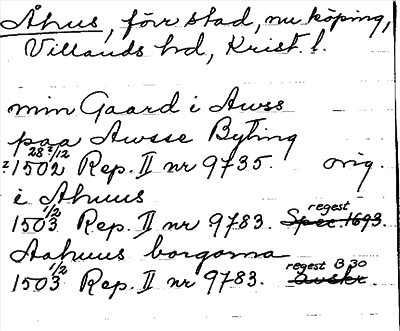 Åhus, förr stad, nu köping,
Villands hd, Krist. l.
min Gaard i Awss
paa Awsse Byting
28 2/12
1502 Rep. II nr 9735. orig.
i Ahuus
1/2 regest
1503 Rep. II nr 9783. Spec. 1693.
Aahuus borgorna
1/2 regest B 30
1503 Rep. II nr 9783. Avskr.